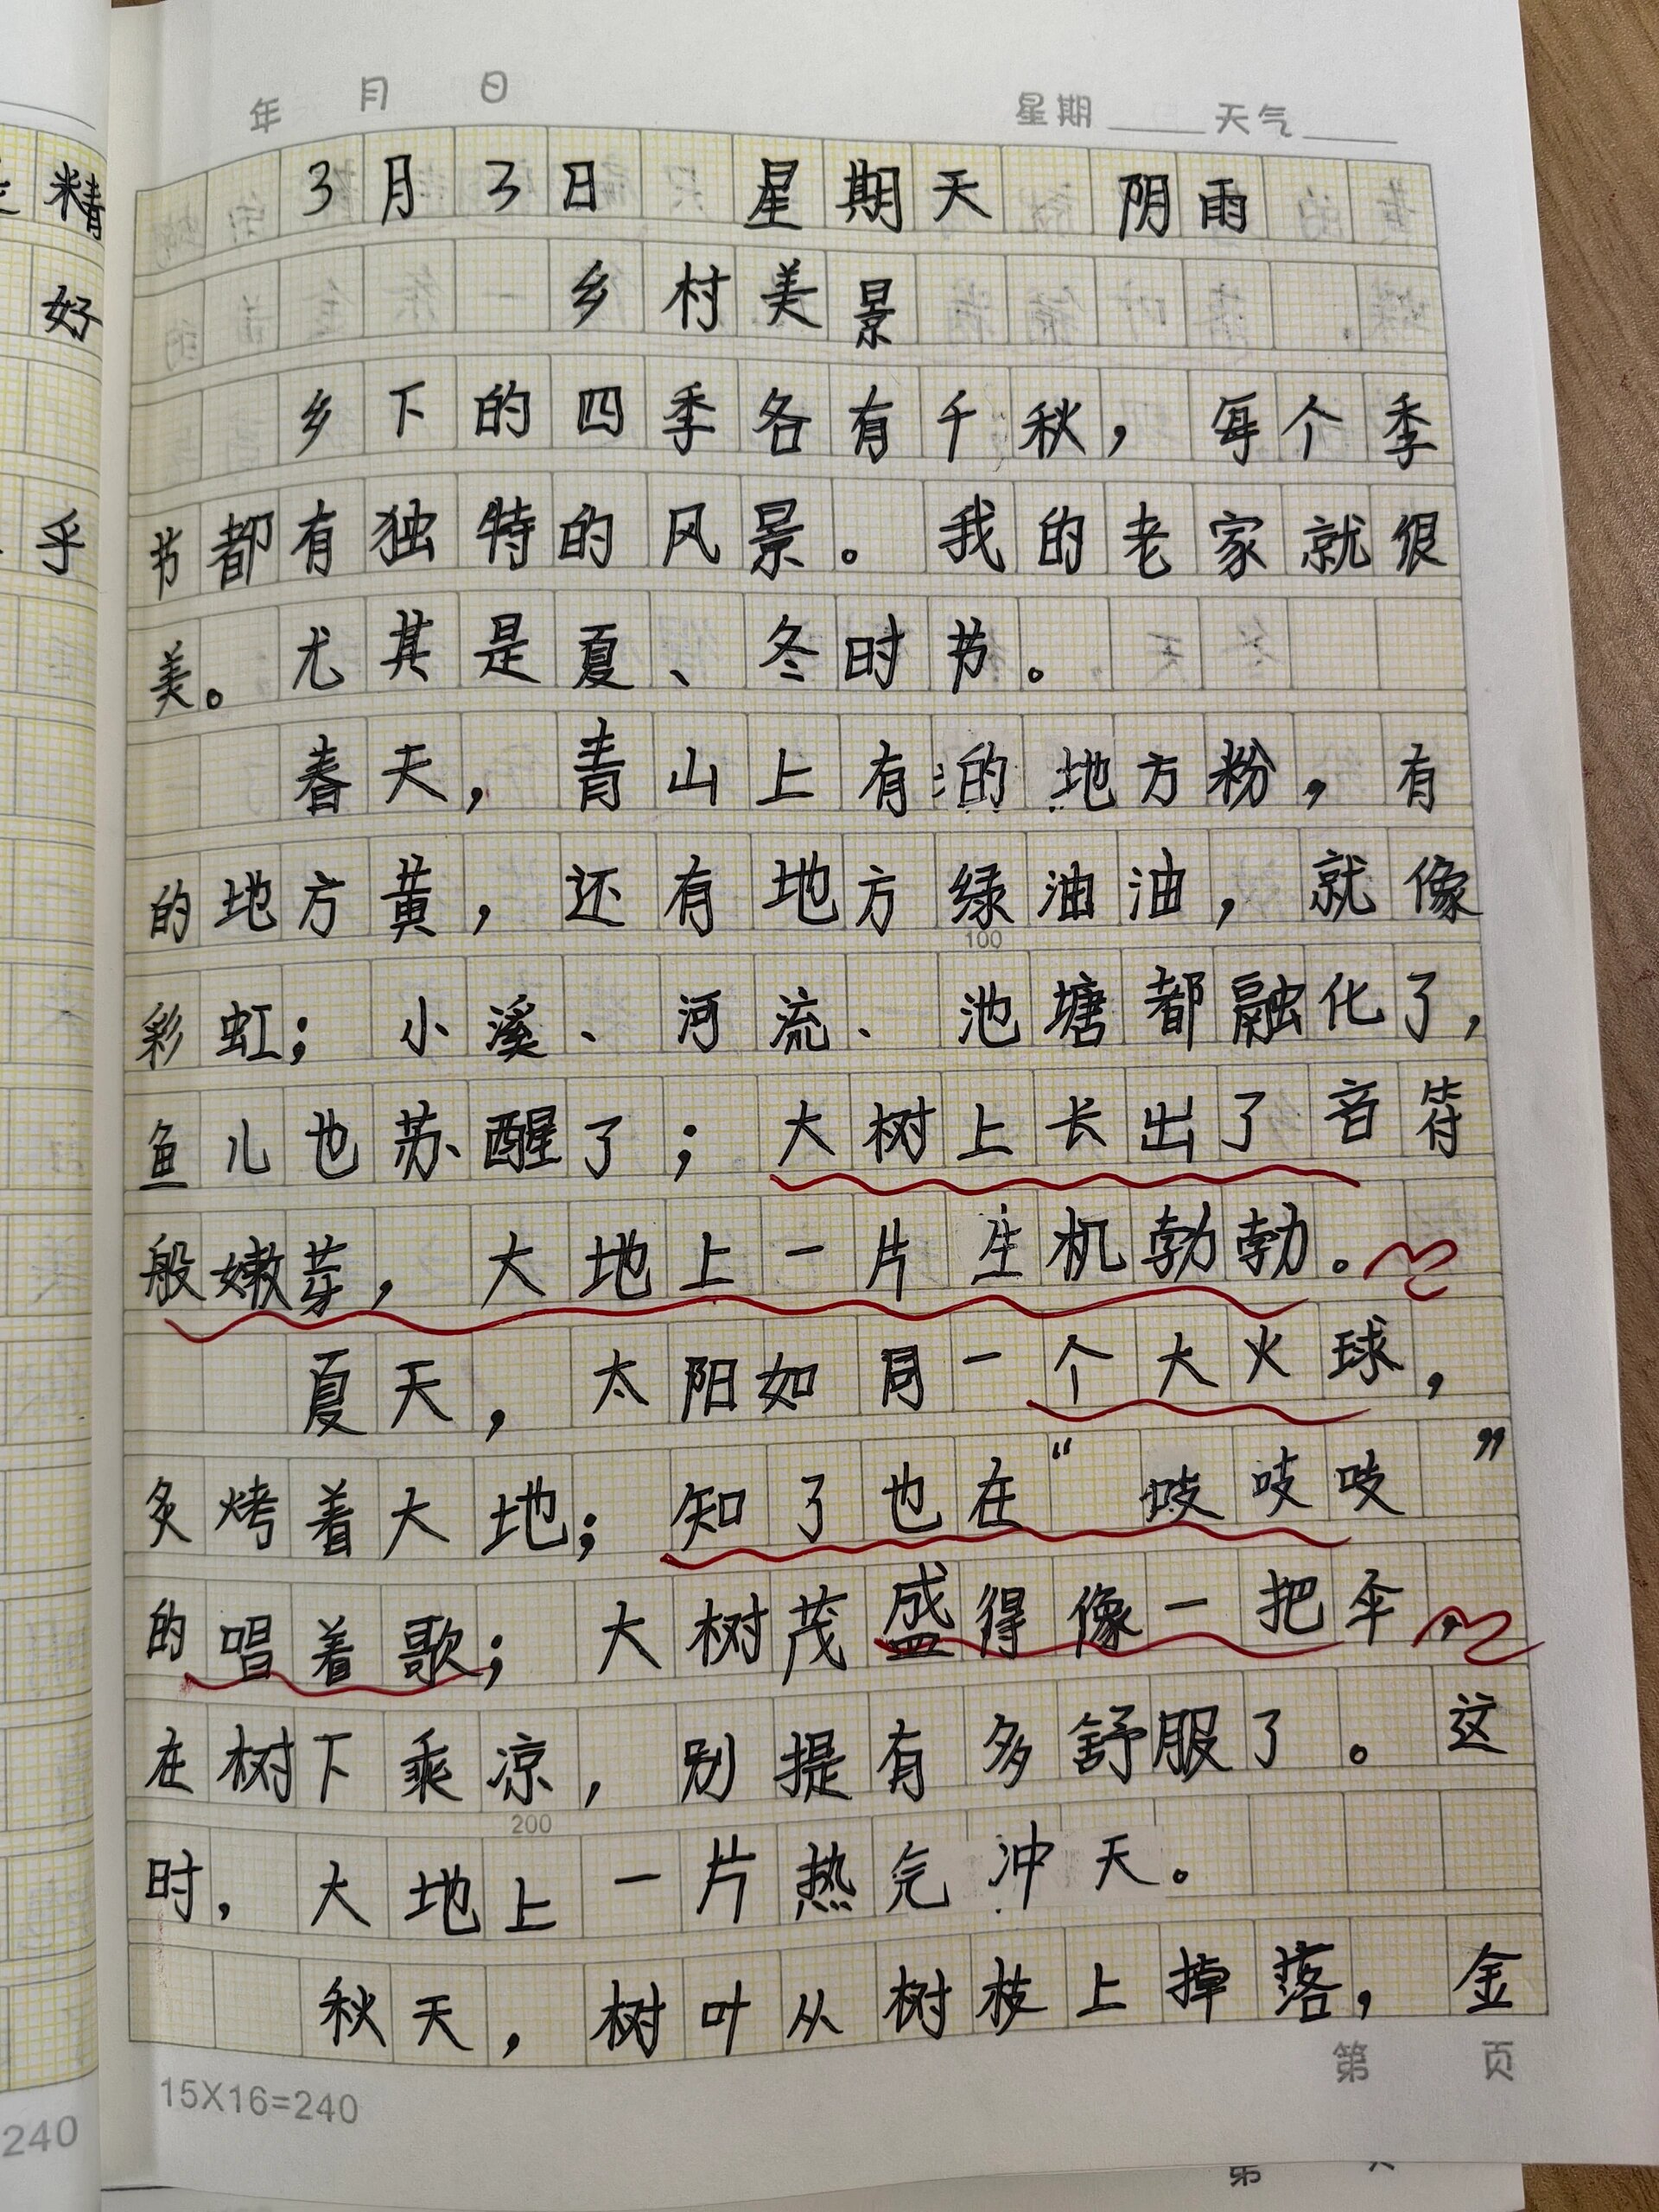 年 月 日 星期 天气
3月3日 星期天 阴雨
乡村美景
乡下的四季各有千秋，每个季
节都有独特的风景。我的老家就很
美。尤其是夏、冬时节。
春天，青山上有的地方粉，有
的地方黄，还有地方绿油油，就像
100
彩虹；小溪、河流、池塘都融化了，
鱼儿也苏醒了；大树上长出了音符
般嫩芽，大地上一片生机勃勃。
夏天，太阳如同一个大火球，
炙烤着大地；知了也在“吱吱吱”
的唱着歌；大树茂盛得像一把伞，
在树下乘凉，别提有多舒服了。这
200
时，大地上一片热气冲天。
秋天，树叶从树枝上掉落，金
第 页
15X16=240
精
好
乎
240